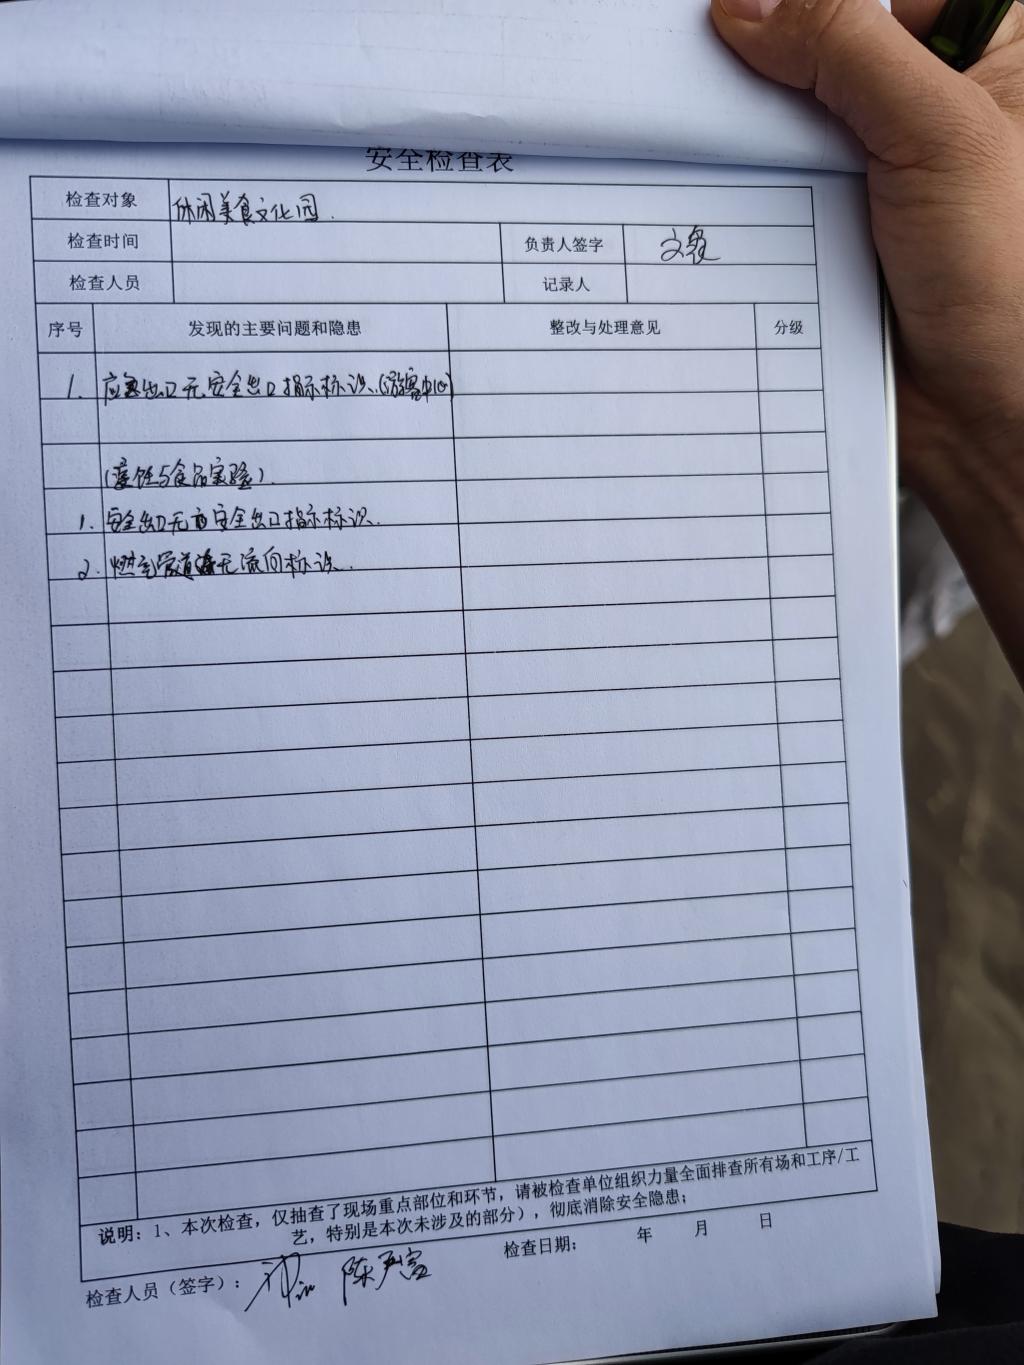 安全检查表
检查对象 休闲美食文化园.
检查时间 负责人签字
检查人员 记录人
序号 发现的主要问题和隐患 整改与处理意见 分级
1. 应急出口无安全出口指示标识.(游客中心)
(烹饪与食品实验).
1. 安全出口无安全出口指示标识.
2. 燃气管道无流向标识.
说明：1、本次检查，仅抽查了现场重点部位和环节，请被检查单位组织力量全面排查所有场和工序/工
艺，特别是本次未涉及的部分），彻底消除安全隐患；
检查人员（签字）： 检查日期： 年 月 日